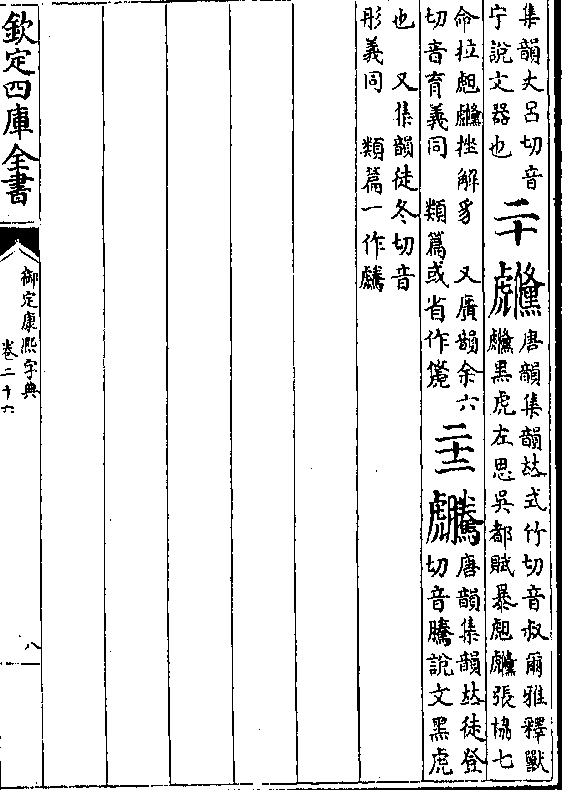 集韻丈呂切音
宁說文器也
二十
虪
唐韻集韻𠀤式竹切音叔爾雅釋獸
虪黑虎左思吳都賦暴甝虪張協七
命拉甝虪挫解豸 又廣韻余六
切音育義同 類篇或省作
二十二
䖜
唐韻集韻𠀤徒登
切音騰說文黑虎
也 又集韻徒冬切音
彤義同 類篇一作䖜
欽定四庫全書
御定康熙字典
卷二十六
八